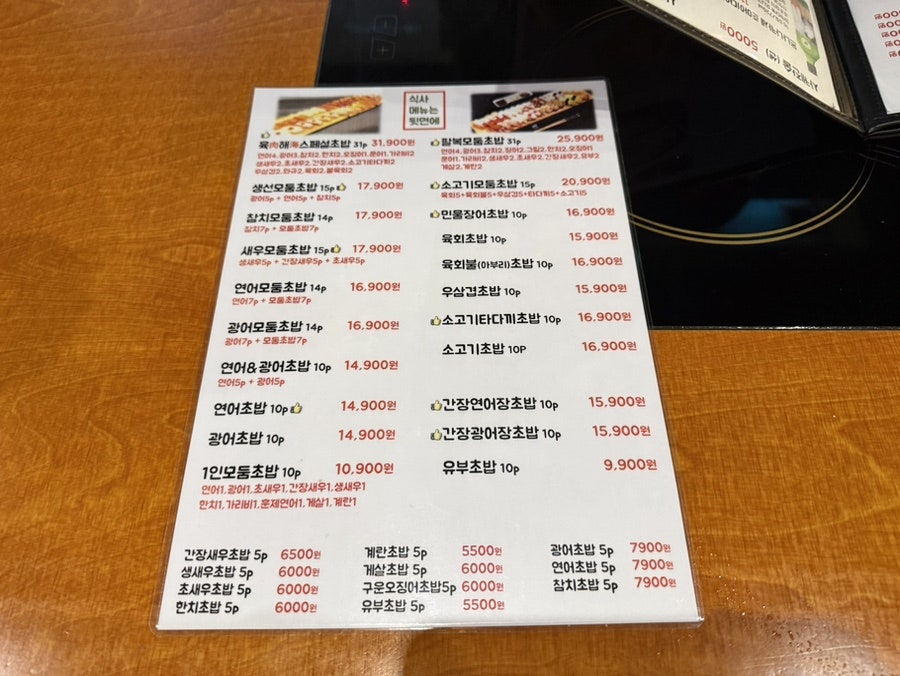 식사
메뉴는
뒷면에
육肉해海스페셜초밥 31p 31,900원
연어4, 광어3, 참치2, 한치2, 오징어1, 문어1, 가리비2
생새우2, 초새우2, 간장새우2, 소고기타다끼2
우삼겹2, 와규2, 육회2, 불육회2
생선모둠초밥 15p 17,900원
광어5p + 연어5p + 참치5p
참치모둠초밥 14p 17,900원
참치7p + 모둠초밥7p
새우모둠초밥 15p 17,900원
생새우5p + 간장새우5p + 초새우5p
연어모둠초밥 14p 16,900원
연어7p + 모둠초밥7p
광어모둠초밥 14p 16,900원
광어7p + 모둠초밥7p
연어&광어초밥 10p 14,900원
연어5p + 광어5p
연어초밥 10p 14,900원
광어초밥 10p 14,900원
1인모둠초밥 10p 10,900원
연어1, 광어1, 초새우1, 간장새우1, 생새우1
한치1, 가리비1, 훈제연어1, 게살1, 계란1
팔복모둠초밥 31p 25,900원
연어4, 광어3, 참치2, 장어2, 그릴2, 한치2, 오징어1
문어1, 가리비2, 생새우2, 초새우2, 간장새우2, 유부2
게살2, 계란2
소고기모둠초밥 15p 20,900원
육회5+육회불5+우삼겹5+타다끼5+소고기5
민물장어초밥 10p 16,900원
육회초밥 10p 15,900원
육회불(아부리)초밥 10p 16,900원
우삼겹초밥 10p 15,900원
소고기타다끼초밥 10p 16,900원
소고기초밥 10P 16,900원
간장연어장초밥 10p 15,900원
간장광어장초밥 10p 15,900원
유부초밥 10p 9,900원
간장새우초밥 5p 6500원
생새우초밥 5p 6000원
초새우초밥 5p 6000원
한치초밥 5p 6000원
계란초밥 5p 5500원
게살초밥 5p 6000원
구운오징어초밥5p 6000원
유부초밥 5p 5500원
광어초밥 5p 7900원
연어초밥 5p 7900원
참치초밥 5p 7900원
5000원